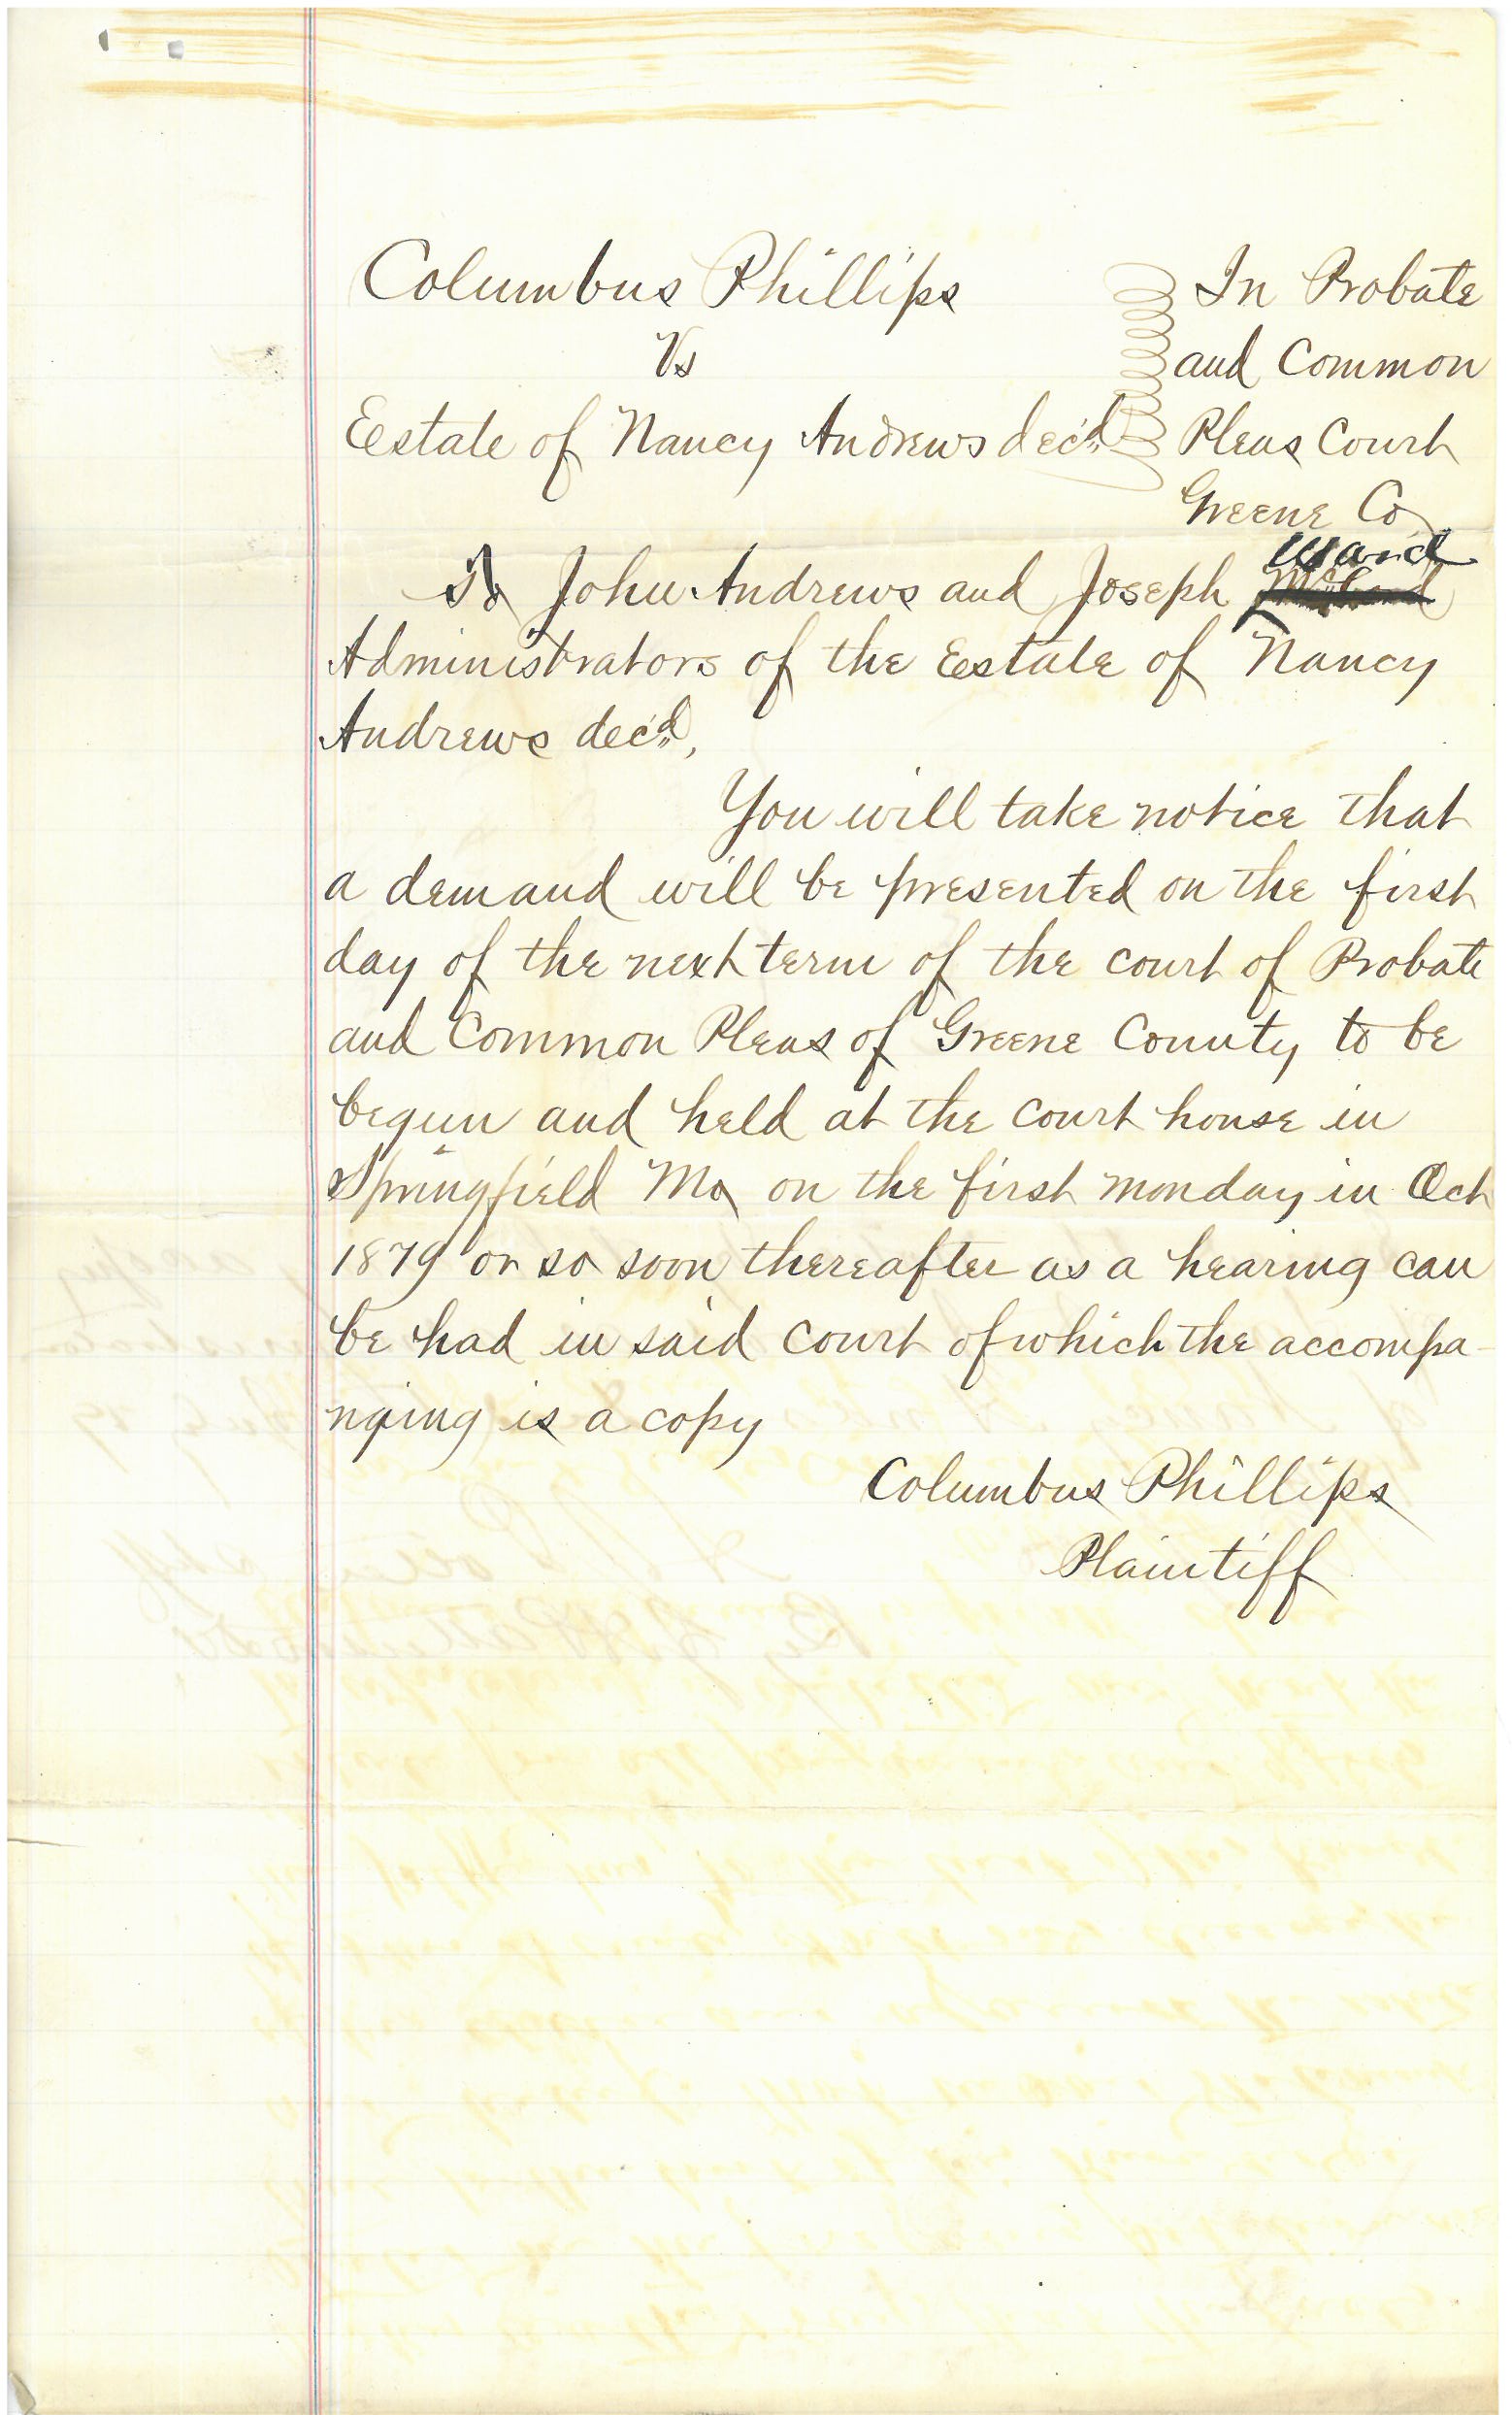 Columbus Phillips
Vs
Estate of Nancy Andrews dec'd
In Probate
and Common
Pleas Court
Greene Co
Ward
To John Andrews and Joseph
Administrators of the Estate of Nancy
Andrews dec'd,
You will take notice that
a demand will be presented on the first
day of the next term of the court of Probate
and Common Pleas of Greene County to be
begun and held at the court house in
Springfield Mo on the first monday in Oct
1879 or so soon thereafter as a hearing can
be had in said court of which the accompa-
nying is a copy
Columbus Phillips
Plaintiff